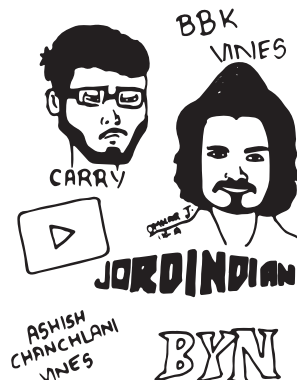 BBK
VINES
CARRY
OMKAR J.
JORDINDIAN
ASHISH
CHANCHLANI
VINES
BYN